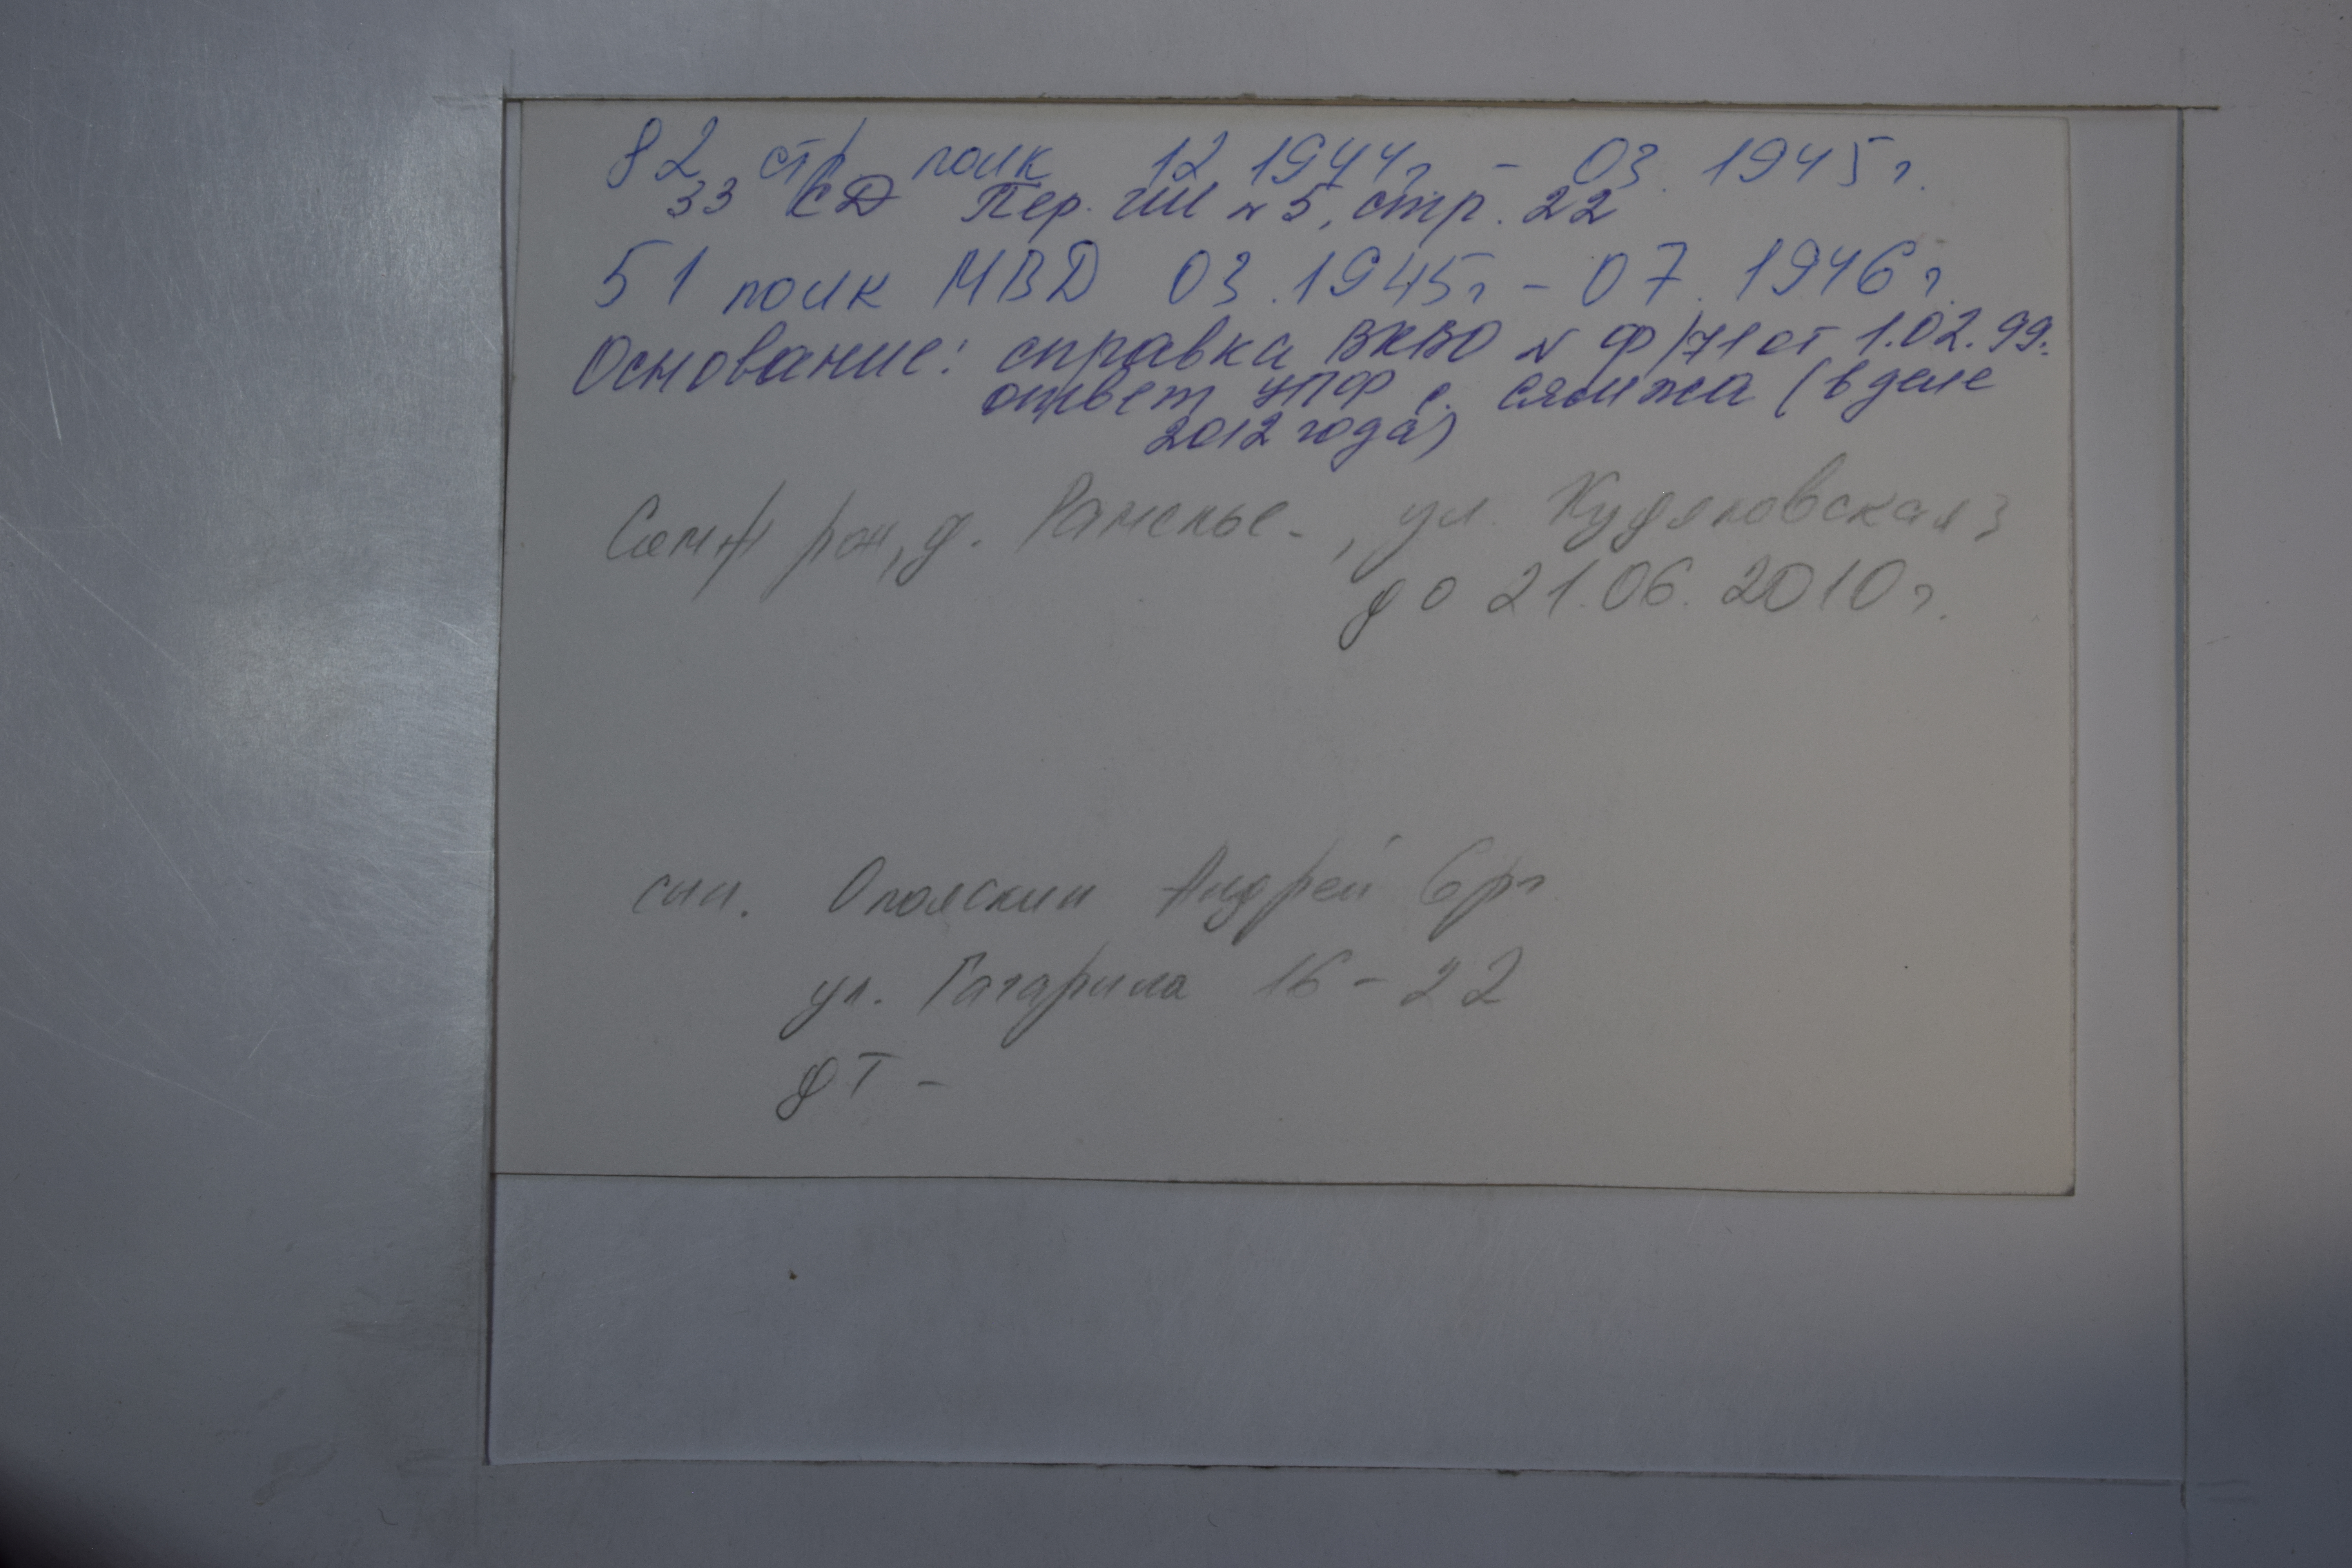 82 стр полк 12 1944г - 03. 1945г.
33 СД Пер. ГШ № 5, стр. 22
51 полк МВД 03.1945г - 07. 1946г.
Основание: справка ВКВО № Ф/71 от 1.02.99.
ответ УПФ с. Сямжа (в деле
2012 года)
Сямж рон, д. Раменье, ул. 3
до 21.06.2010г.
Андрей
ул. Гагарина 16-22
дт -